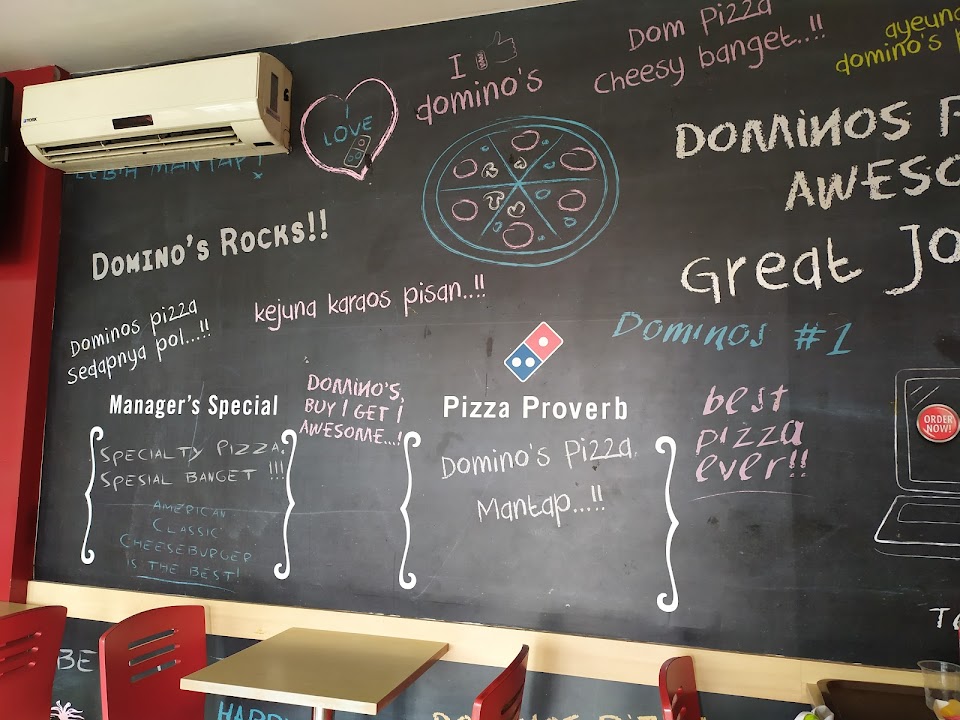 I
domino's
Dom Pizza
Cheesy banget..!!
ayeuna
domino's
YORK
LEBIH MANTAP!
I
LOVE
DOMINOS
AWESO
Great Jo
DOMINO'S ROCKS!!
Dominos pizza
sedapnya pol...!!
kejuna karaos pisan...!!
DOMINOS #1
Manager's Special
SPECIALTY PIZZA,
SPESIAL BANGET !!!
AMERICAN
CLASSIC
CHEESEBURGER
IS THE BEST!
DOMINO'S,
BUY 1 GET 1
AWESOME...!
Pizza Proverb
Domino's Pizza
Mantap...!!
best
pizza
ever!!
ORDER
NOW!
BE